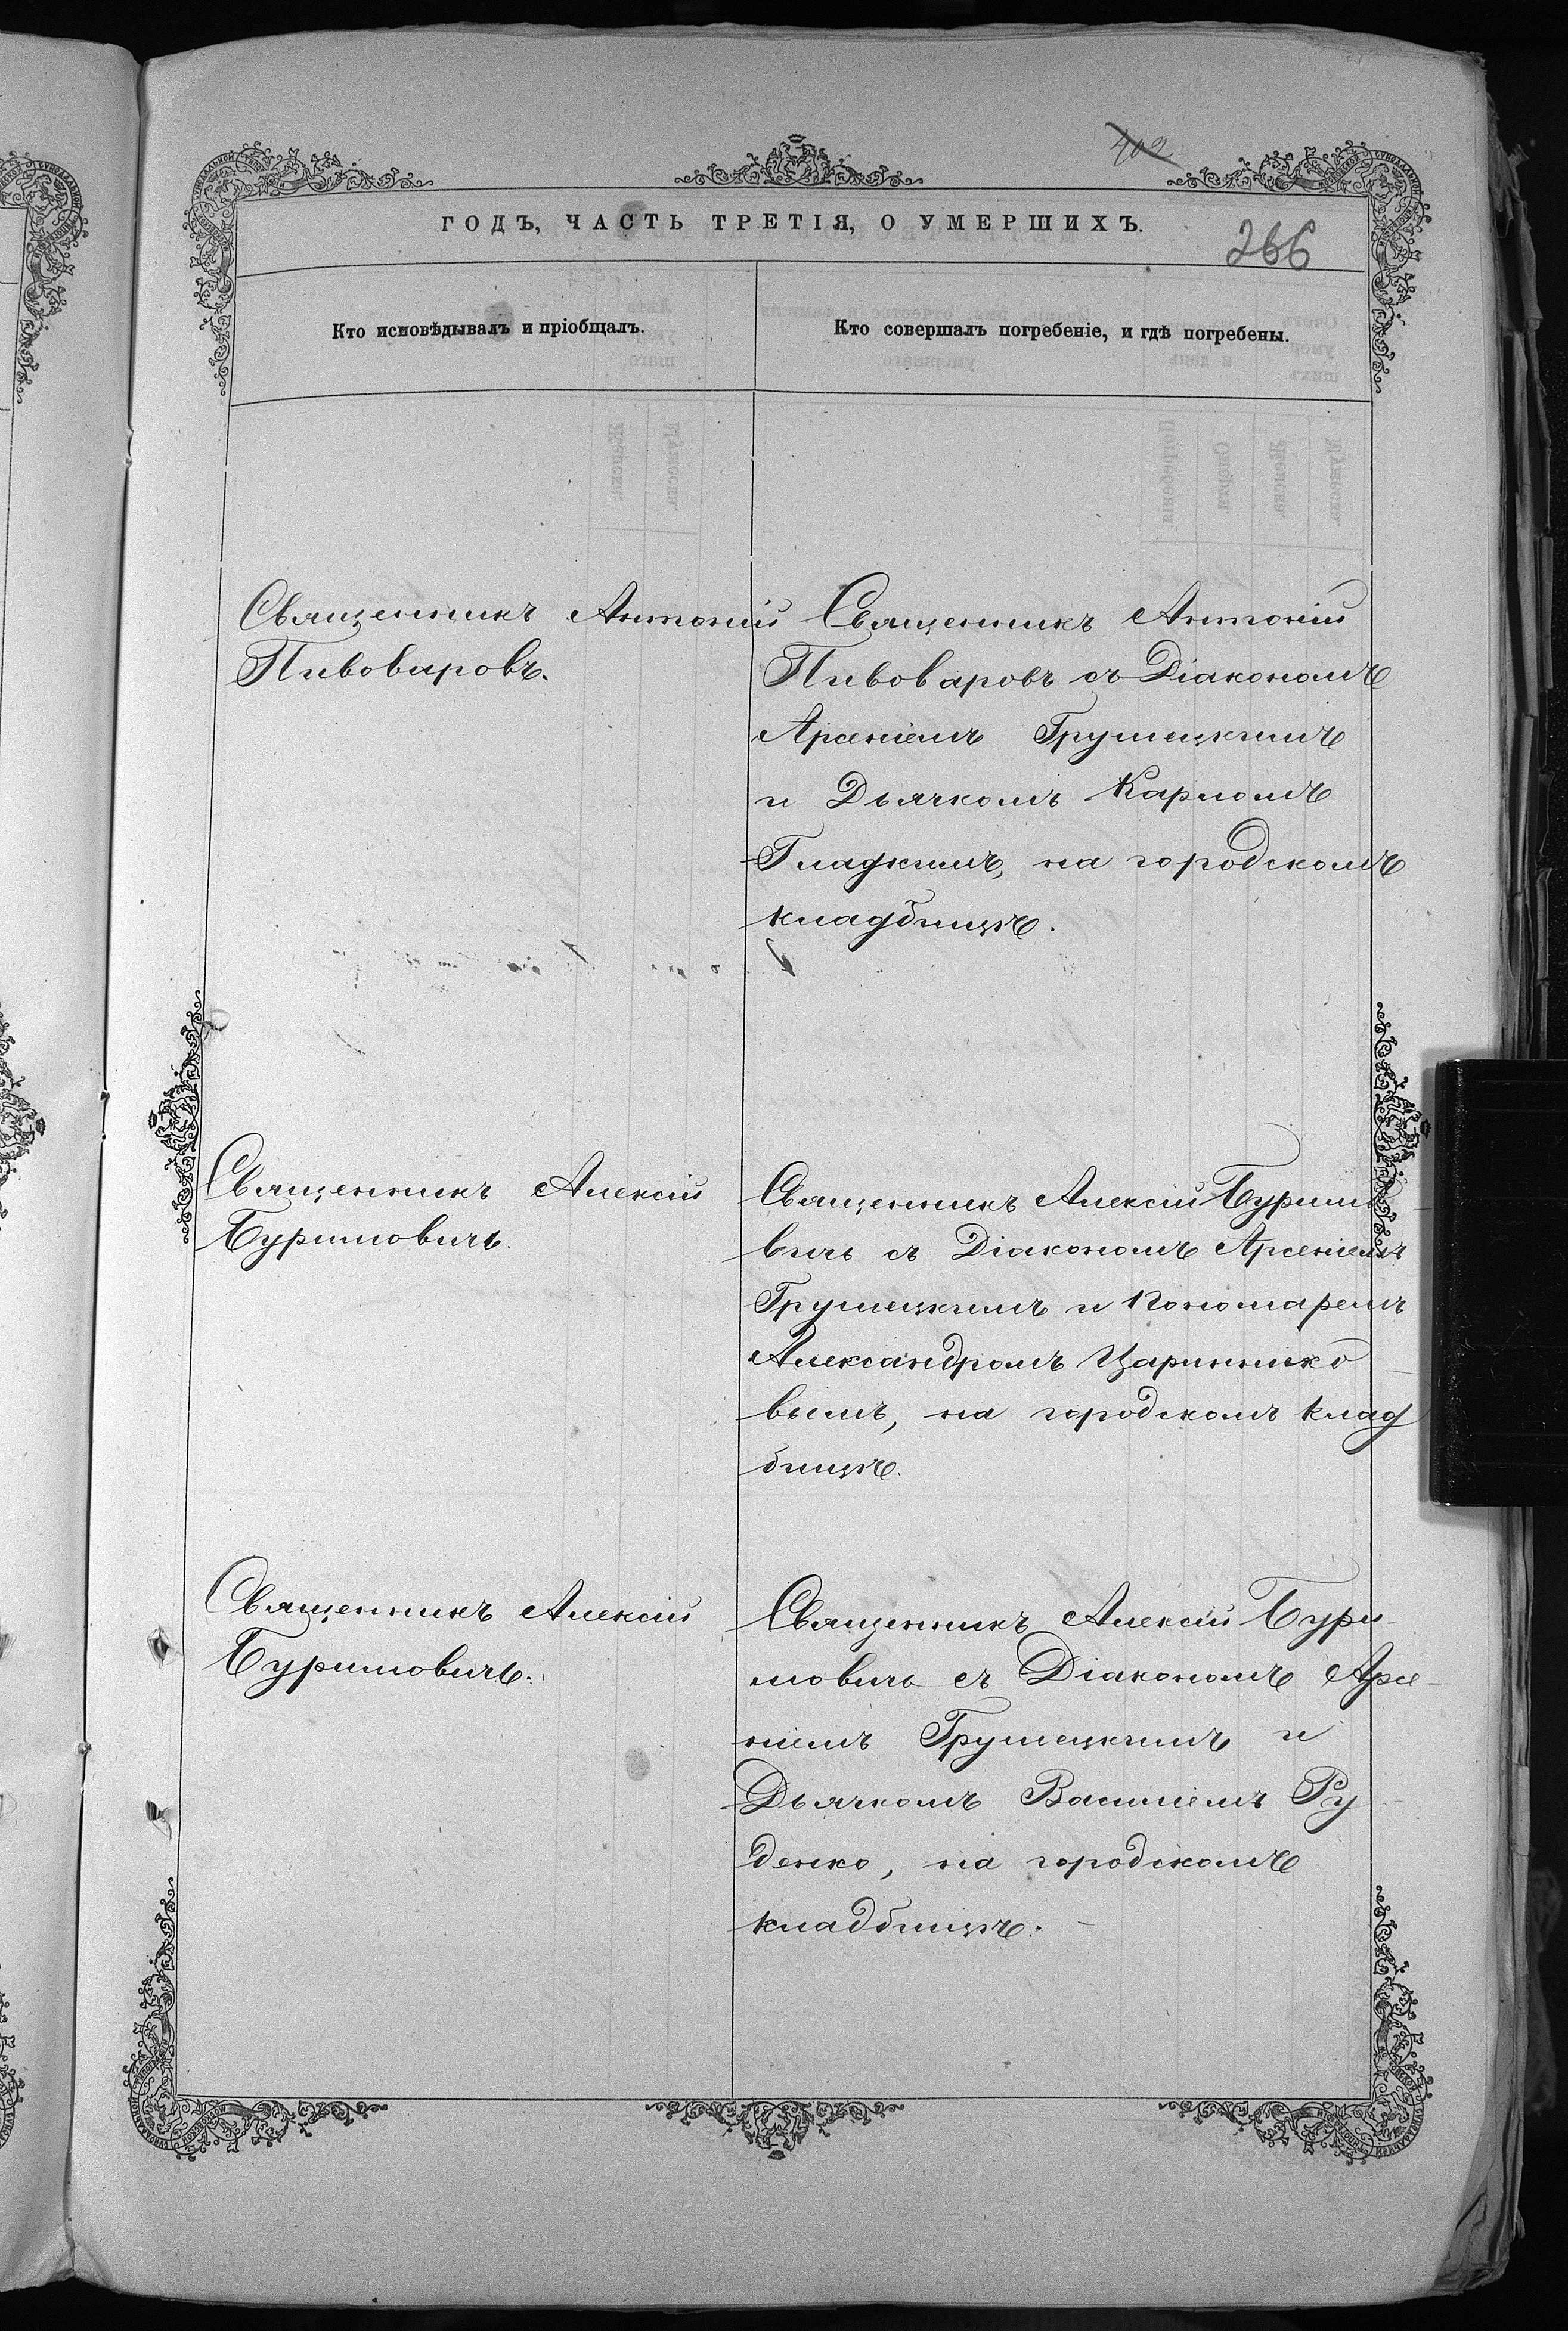 402
ГОДЪ, ЧАСТЬ ТРЕТІЯ, О УМЕРШИХЪ.
266
Кто исповѣдывалъ и пріобщалъ.
Кто совершалъ погребеніе, и гдѣ погребены.
Священникъ Антоній
Пивоваровъ.
Священникъ Антоній
Пивоваровъ съ Діакономъ
Арсеніемъ Грушецкимъ
и Дьячкомъ Карпомъ
Гладкимъ, на городскомъ
кладбищѣ.
Священникъ Алексій
Буримовичъ.
Священникъ Алексій Буримо
вичъ съ Діакономъ Арсеніемъ
Грушецкимъ и Пономаремъ
Александромъ Царинніко
вымъ, на городскомъ клад
бищѣ.
Священникъ Алексій
Буримовичъ.
Священникъ Алексій Бури-
мовичъ съ Діакономъ Арсе-
ніемъ Грушецкимъ и
Дьячкомъ Василіемъ Ру
денко, на городскомъ
кладбищѣ. -